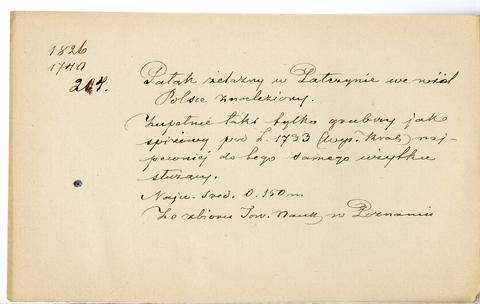 1826
1740
204.
Pałak żelazny w Zatczynie we wsch
Polsce znaleziony.
Zupełnie taki tylko grubszy jak
spiżowy pod L. 1733 (Wyp. Krak) naj-
pewniej do tego samego użytku
służący.
Najw. śred. 0.150 m
Ze zbioru Tow. Nauk. w Poznaniu